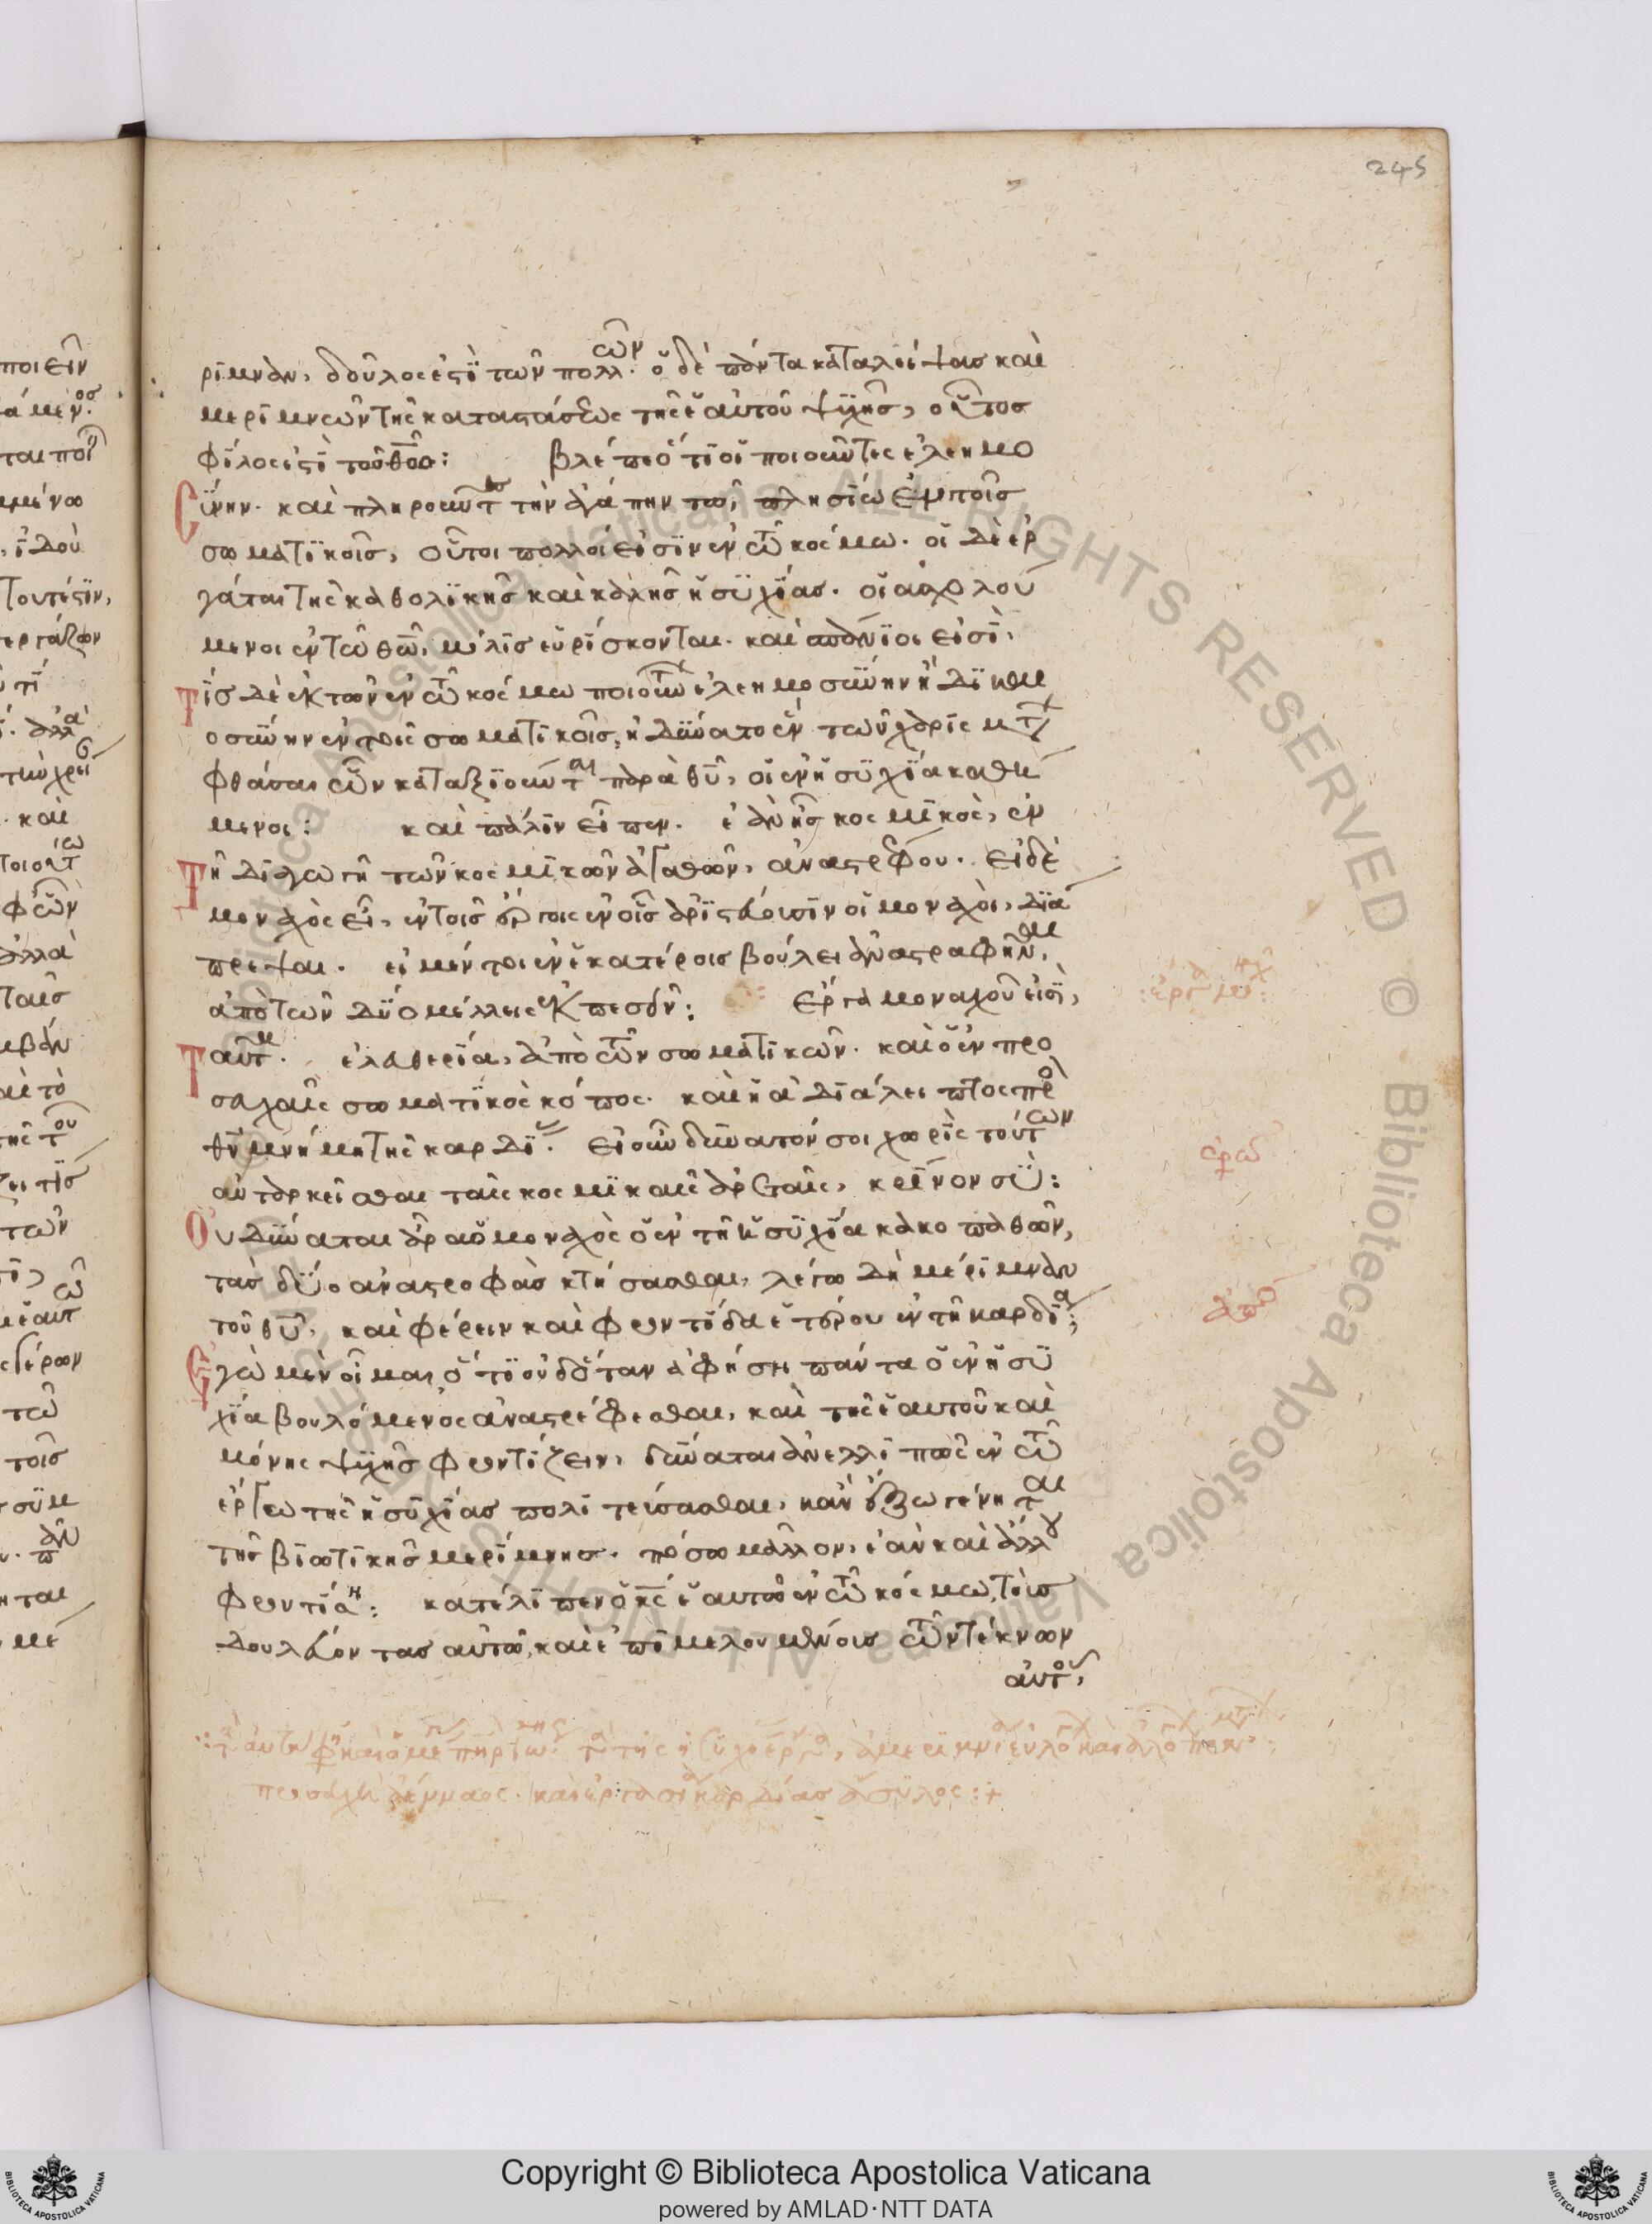 245
ριμνᾶν, δοῦλος ἐστὶ τῶν πολλῶν. ὁ δὲ πάντα καταλείψας καὶ
μεριμνῶν τῆς καταστάσεως τῆς ἑαυτοῦ ψυχῆς, οὗτος
φίλος ἐστὶ τοῦ θυ: βλέπε ὅτι οἱ ποιοῦντες ἐλεημο
σύνην. καὶ πληροῦντες τὴν ἀγάπην τοῦ πλησίον ἐν τοῖς
σωματικοῖς, οὗτοι πολλοί εἰσιν ἐν τῶ κόσμω. οἱ δὲ ἐρ
γάται τῆς καθολικῆς καὶ καλῆς ἡσυχίας. οἱ ἀσχολού
μενοι ἐν τῶ θω, μόλις εὑρίσκονται. καὶ σπάνιοι εἰσί.
Τίς δὲ ἐκ τῶν ἐν τῶ κόσμω ποιούντων ἐλεημοσύνην ἢ δικαι
οσύνην ἐν τοῖς σωματικοῖς, ἠδύνατο ἓν τῶν χαρισμάτων
φθάσαι ὧν καταξιοῦνται παρὰ θυ, οἱ ἐν ἡσυχία καθή
μενοι: καὶ πάλιν εἶπεν. ἐὰν ἦς κοσμικὸς, ἐν
Τῆ διαγωγῆ τῶν κοσμικῶν ἀγαθῶν, ἀναστρέφου. εἰ δὲ
μοναχὸς εἶ, ἐν τοῖς ἔργοις ἐν οἷς ἀριστεύουσιν οἱ μοναχοὶ, διά
πρεψαι. εἰ μέν τοι ἐν ἑκατέροις βούλει ἀναστραφῆναι,
ἀπὸ τῶν δύο μέλλεις ἐκπεσεῖν: ἔργα μοναχοῦ εἰσὶ,
Ταῦτα. ἐλευθερία, ἀπὸ τῶν σωματικῶν. καὶ ὁ ἐν προ
σευχαῖς σωματικὸς κόπος. καὶ ἡ ἀδιάλειπτος πρὸς
θν μνήμη τῆς καρδίας. εἰ οὖν δυνατόν σοι χωρὶς τούτων
αὐταρκεῖσθαι ταῖς κοσμικαῖς ἀρεταῖς, κρῖνον σύ:
Οὐ δύναται ἆρα ὁ μοναχὸς ὁ ἐν τῆ ἡσυχία κακοπαθῶν,
τὰς δύο ἀναστροφὰς κτήσασθαι, λέγω δὴ μέριμναν
τοῦ θυ, καὶ φέρειν καὶ φροντίδα ἑτέρου ἐν τῆ καρδία;
Ἐγὼ μὲν οἶμαι, ὅτι οὐδ ὅταν ἀφήση πάντα ὁ ἐν ἡσυ
χία βουλόμενος ἀναστρέφεσθαι, καὶ τῆς ἑαυτοῦ καὶ
μόνης ψυχῆς φροντίζειν, δύναται ἀνελλιπῶς ἐν τῶ
ἔργω τῆς ἡσυχίας πολιτεύσασθαι, κἂν ἔξω γένηται
τῆς βιωτικῆς μερίμνης. πόσω μᾶλλον, ἐὰν καὶ ἄλλου
φροντίση: κατέλιπεν ὁ κς ἑαυτῶ ἐν τῶ κόσμω, τοὺς
δουλεύοντας αὐτῶ, καὶ ἐπιμελουμένους τῶν τέκνων
αὐτοῦ,